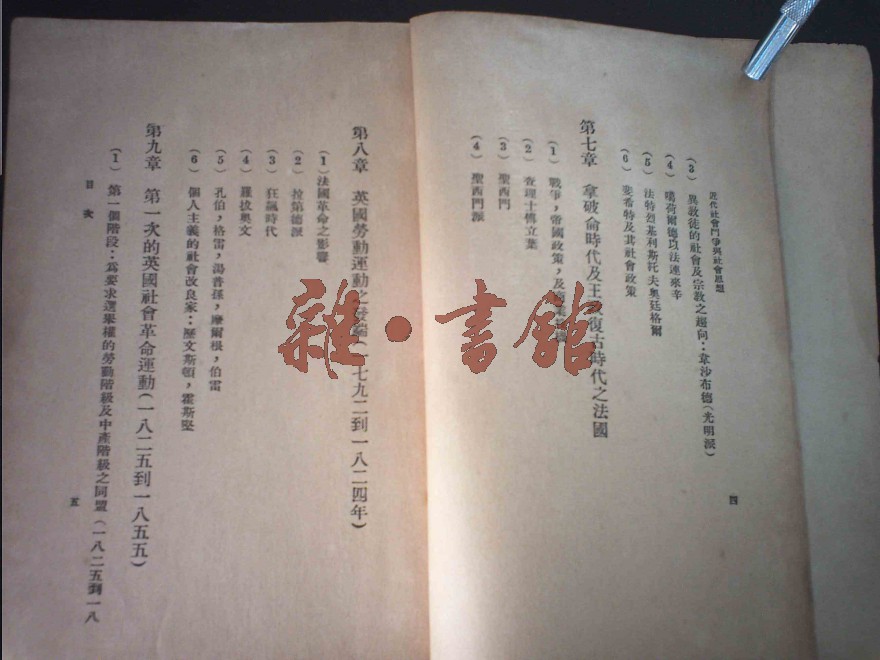 近代社會鬥爭與社會思想
(3) 異教徒的社會及宗教之趨向：韋沙布德(光明派)
(4) 噶荷爾德以法連來辛
(5) 法特烈基利斯托夫奧廷格爾
(6) 斐希特及其社會政策
第七章 拿破侖時代及王 復古時代之法國
(1) 戰爭，帝國政策，及
(2) 查理士傅立葉
(3) 聖西門
(4) 聖西門派
四
第八章 英國勞動運動之發端(一七九二到一八二四年)
(1) 法國革命之影響
(2) 拉第德派
(3) 狂飆時代
(4) 羅拔奧文
(5) 孔伯，格雷，湯普孫，摩爾根，伯雷
(6) 個人主義的社會改良家：歷文斯頓，霍斯堅
第九章 第一次的英國社會革命運動(一八二五到一八五五)
(1) 第一個階段：爲要求選舉權的勞動階級及中產階級之同盟(一八二五到一八
目次
五
雜·書館